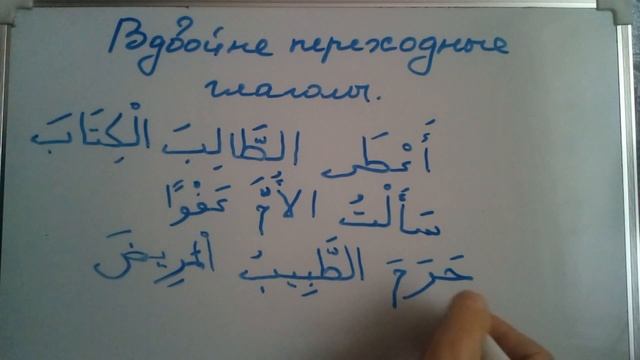 Вдвойне переходные
глаголы.
أَعْطَى الطَّالِبَ الْكِتَابَ
سَأَلْتُ الأُمَّ عَفْوًا
حَرَمَ الطَّبِيبُ الْمَرِيضَ